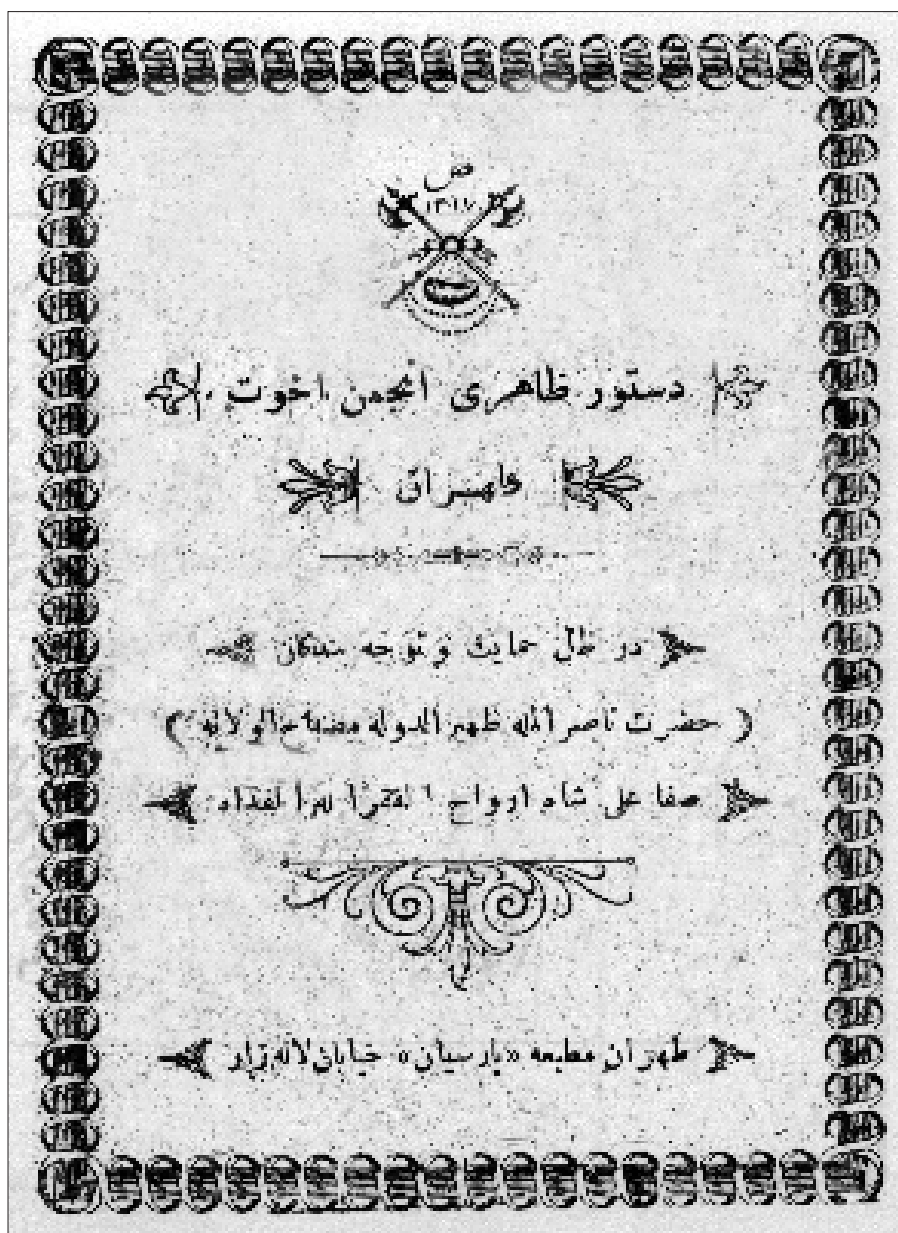 ۱۳۱۷
دستور ظاهری انجمن اخوت
طهران
در ظل حمایت و توجه بندگان
( حضرت ناصر الله ظهیر الدوله مصباح الولایه )
صفا علی شاه ارواح الفقرآ لهم الفداه
طهران مطبعه «پارسیان» خیابان لاله زار